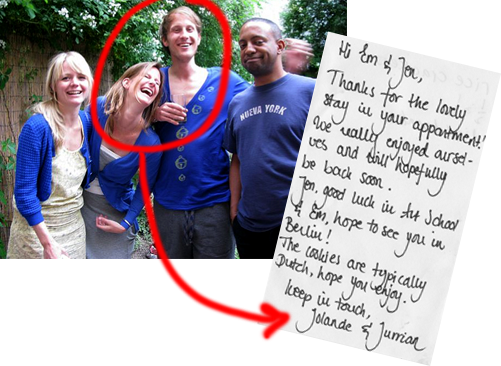 NUEVA YORK
Hi Em & Jen,
Thanks for the lovely
stay in your appartment!
We really enjoyed oursel-
ves and will hopefully
be back soon.
Jen, good luck in Art School
& Em, hope to see you in
Berlin!
The cookies are typically
Dutch, hope you enjoy.
keep in touch,
Jolande & Jurrian